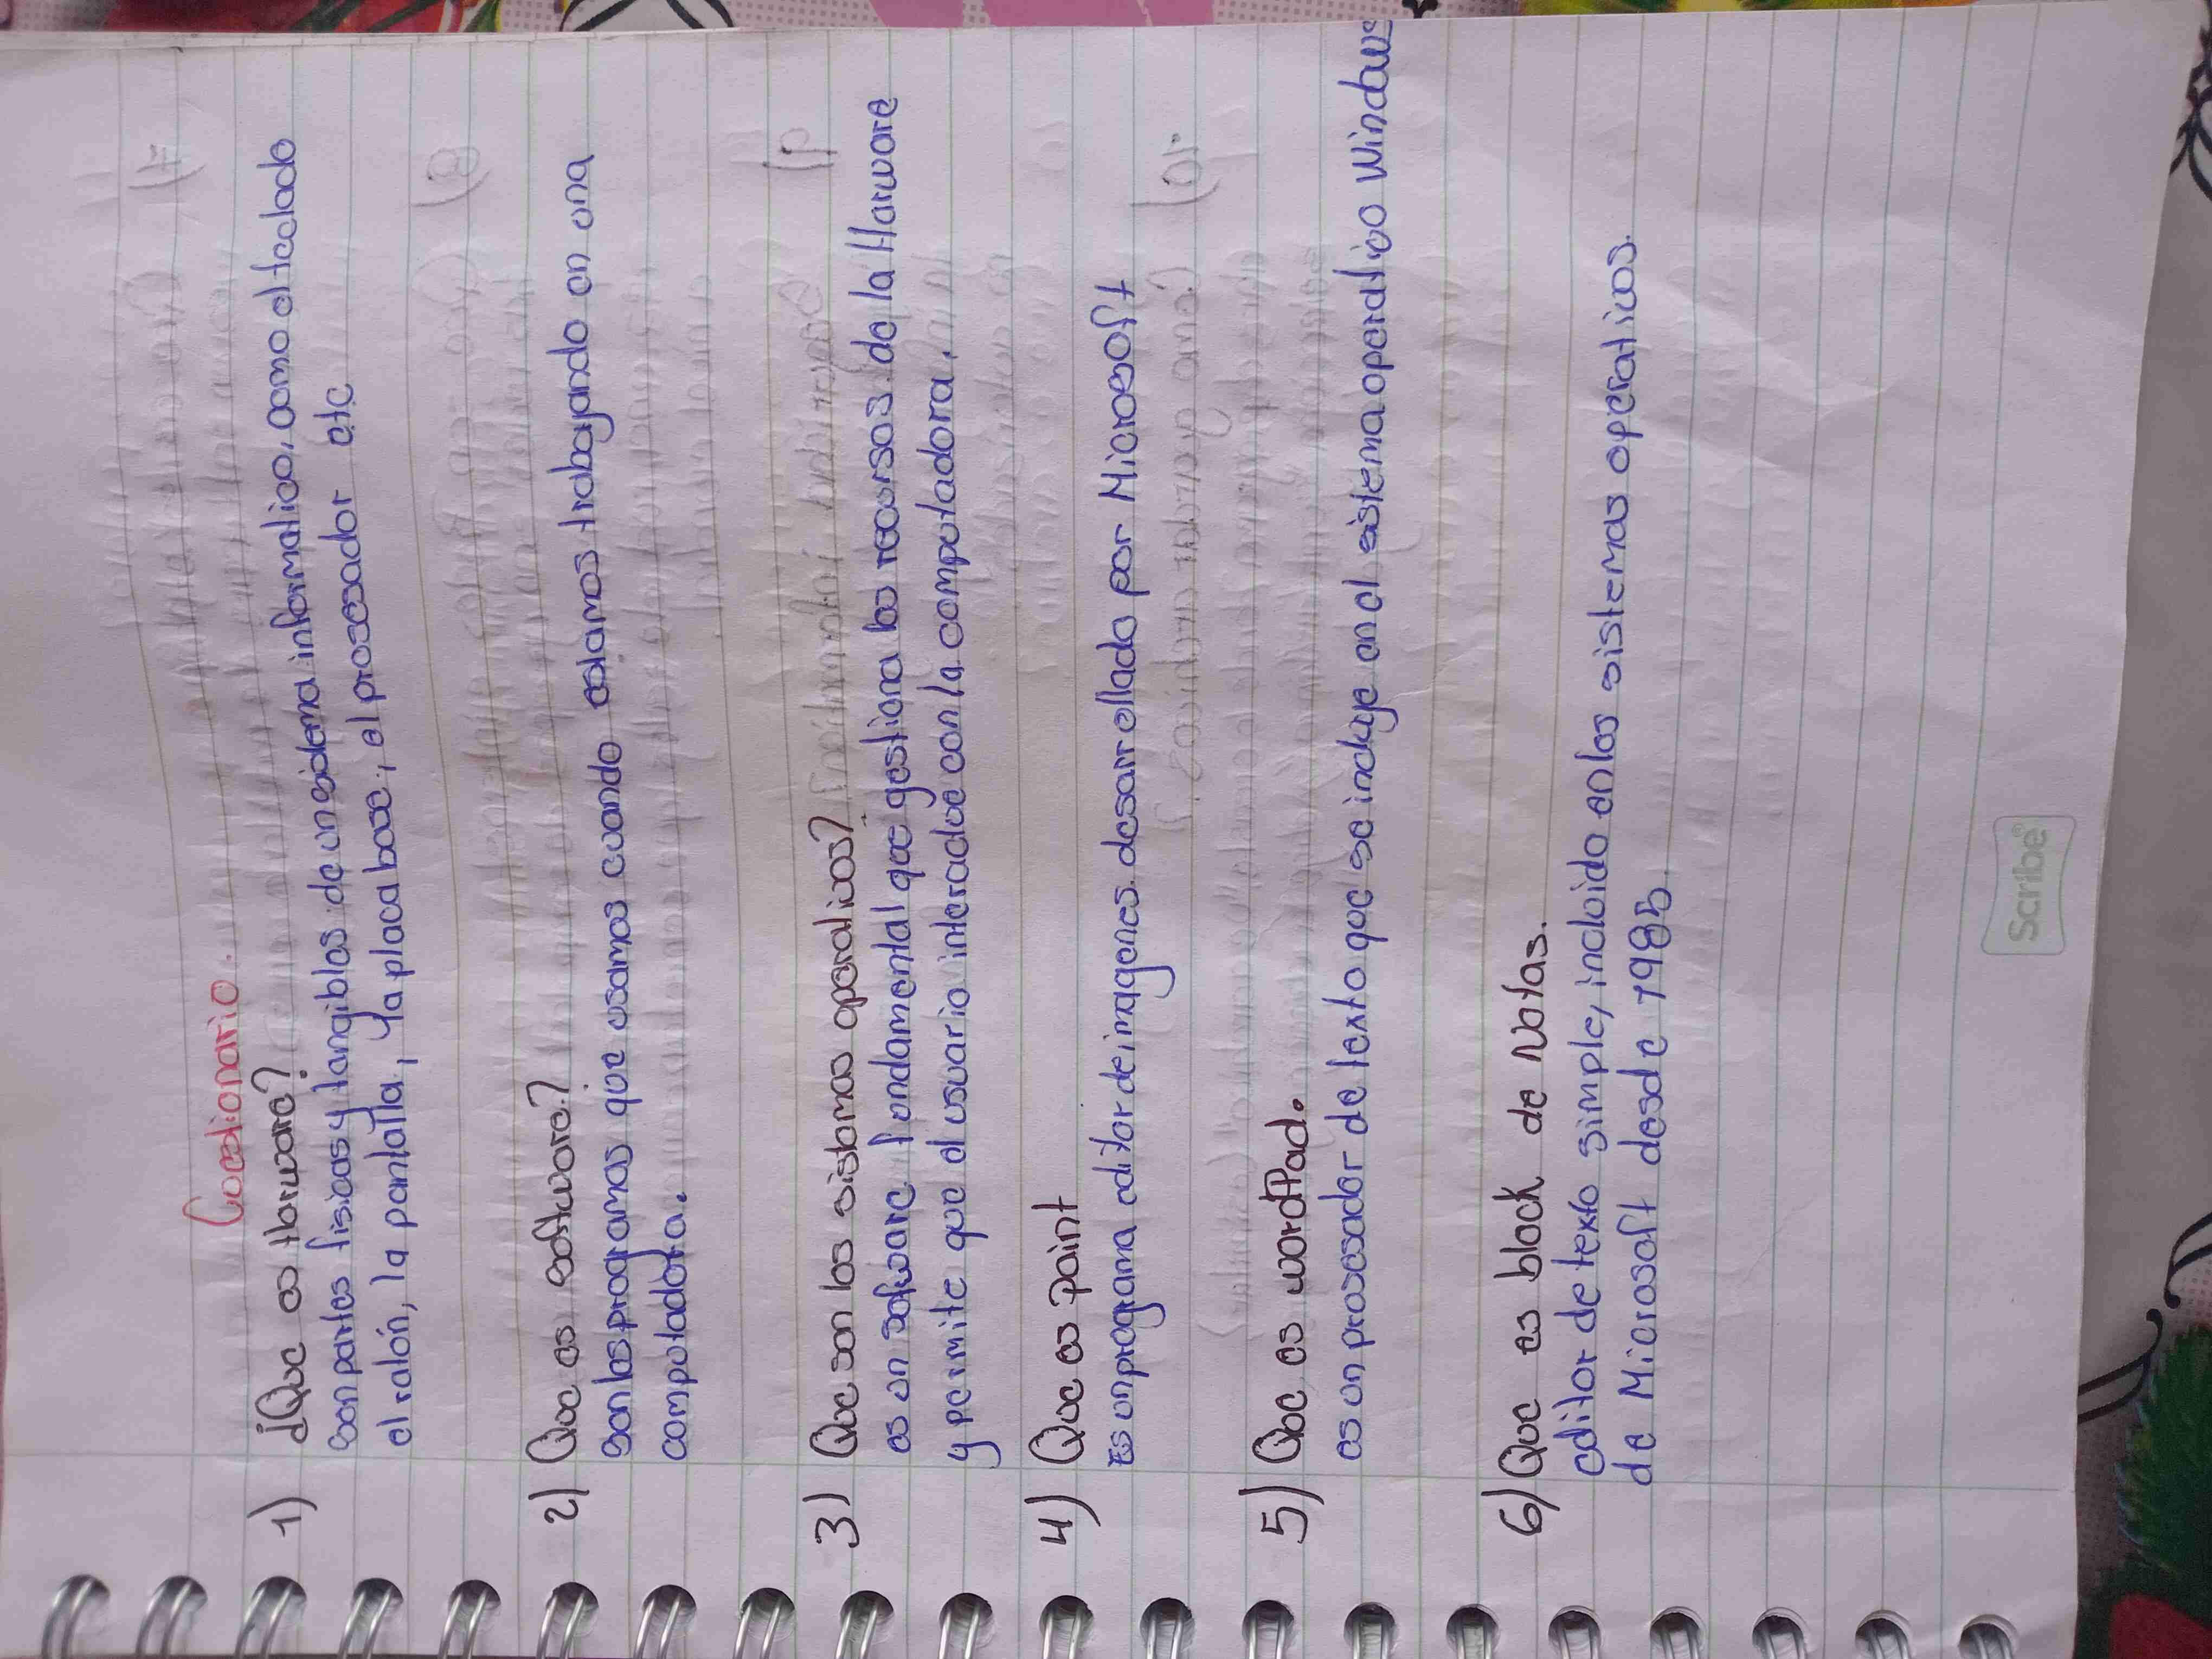 Cuestionario.
1) ¿Que es Harware?
son partes fisicas y tangibles de un sistema informatico, como el teclado
el ratón, la pantalla, la placa base, el procesador etc
2) Que es software?
son los programas que usamos cuando estamos trabajando en una
computadora.
3) Que son los sistemas operativos?
es un sofware fundamental que gestiona los recursos de la Harware
y permite que el usuario interactue con la computadora.
4) Que es paint
Es un programa editor de imagenes desarrollado por Microsoft
5) Que es wordPad.
es un prosesador de texto que se incluye en el sistema operativo Windows
6) Que es block de Notas.
editor de texto simple, incluido en los sistemas operativos.
de Microsoft desde 1985.
Scribe®